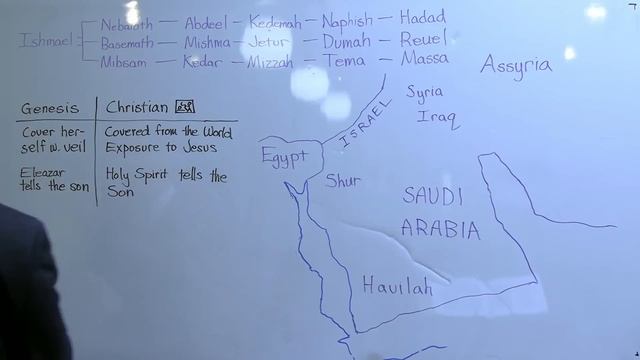 Ishmael
Nebaioth — Abdeel — Kedemah — Naphish — Hadad
Basemath — Mishma — Jetur — Dumah — Reuel
Mibsam — Kedar — Mizzah — Tema — Massa
Assyria
Syria
Iraq
ISRAEL
Egypt
Shur
SAUDI
ARABIA
Havilah
Genesis
Christian
Cover her-
self w. veil
Covered from the World
Exposure to Jesus
Eleazar
tells the son
Holy Spirit tells the
Son